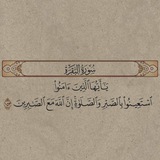 سُورَةُ البَقَرَةِ
يَٰٓأَيُّهَا ٱلَّذِينَ ءَامَنُوا۟
ٱسْتَعِينُوا۟ بِٱلصَّبْرِ وَٱلصَّلَوٰةِ إِنَّ ٱللَّهَ مَعَ ٱلصَّٰبِرِينَ